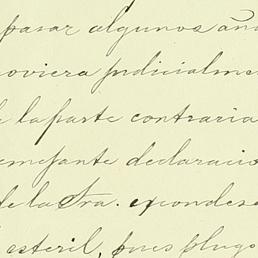 pasar algunos año
oviera judicialme
e la parte contraria
emejante declaracio
de la Sra. excondesa
esteril, pues plugo